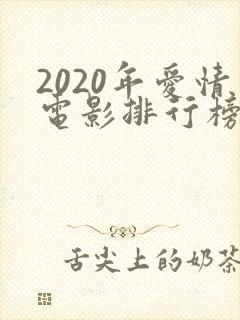 2020年愛情
電影排行榜
舌尖上的奶茶